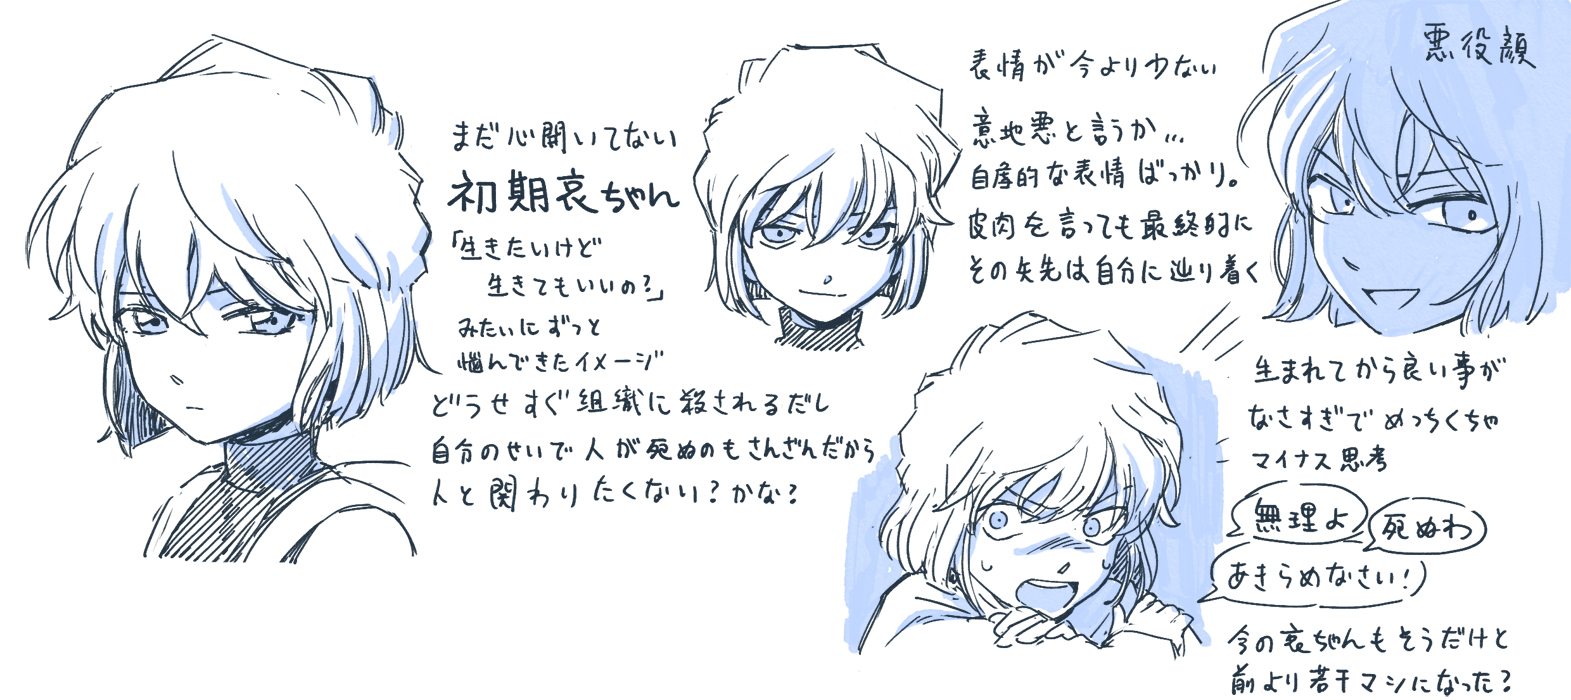 まだ心開いてない
初期哀ちゃん
「生きたいけど
生きてもいいの?」
みたいにずっと
悩んできたイメージ
どうせすぐ組織に殺されるだし
自分のせいで人が死ぬのもさんざんだから
人と関わりたくない?かな?
表情が今より少ない
意地悪と言うか...
自虐的な表情ばっかり。
皮肉を言っても最終的に
その矢先は自分に辿り着く
悪役顔
生まれてから良い事が
なさすぎでめっちくちゃ
マイナス思考
無理よ
死ぬわ
あきらめなさい!
今の哀ちゃんもそうだけと
前より若干マシになった?